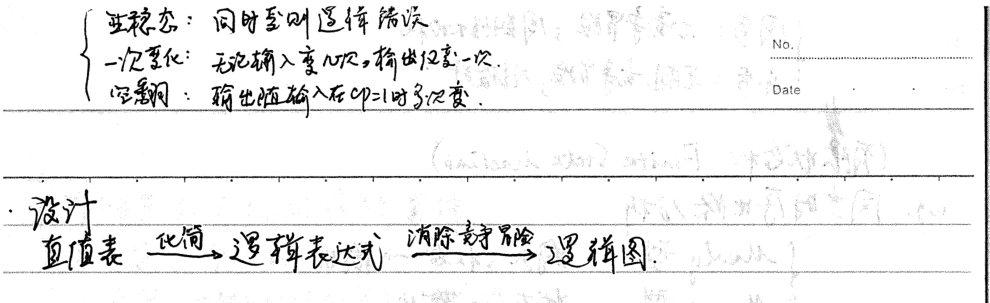 亚稳态: 同时至则逻辑错误
一次变化: 无论输入变几次,输出仅变一次.
空翻: 输出随输入在CP=1时多次变.
No.
Date
· 设计
真值表 化简→ 逻辑表达式 消除竞争冒险→ 逻辑图.